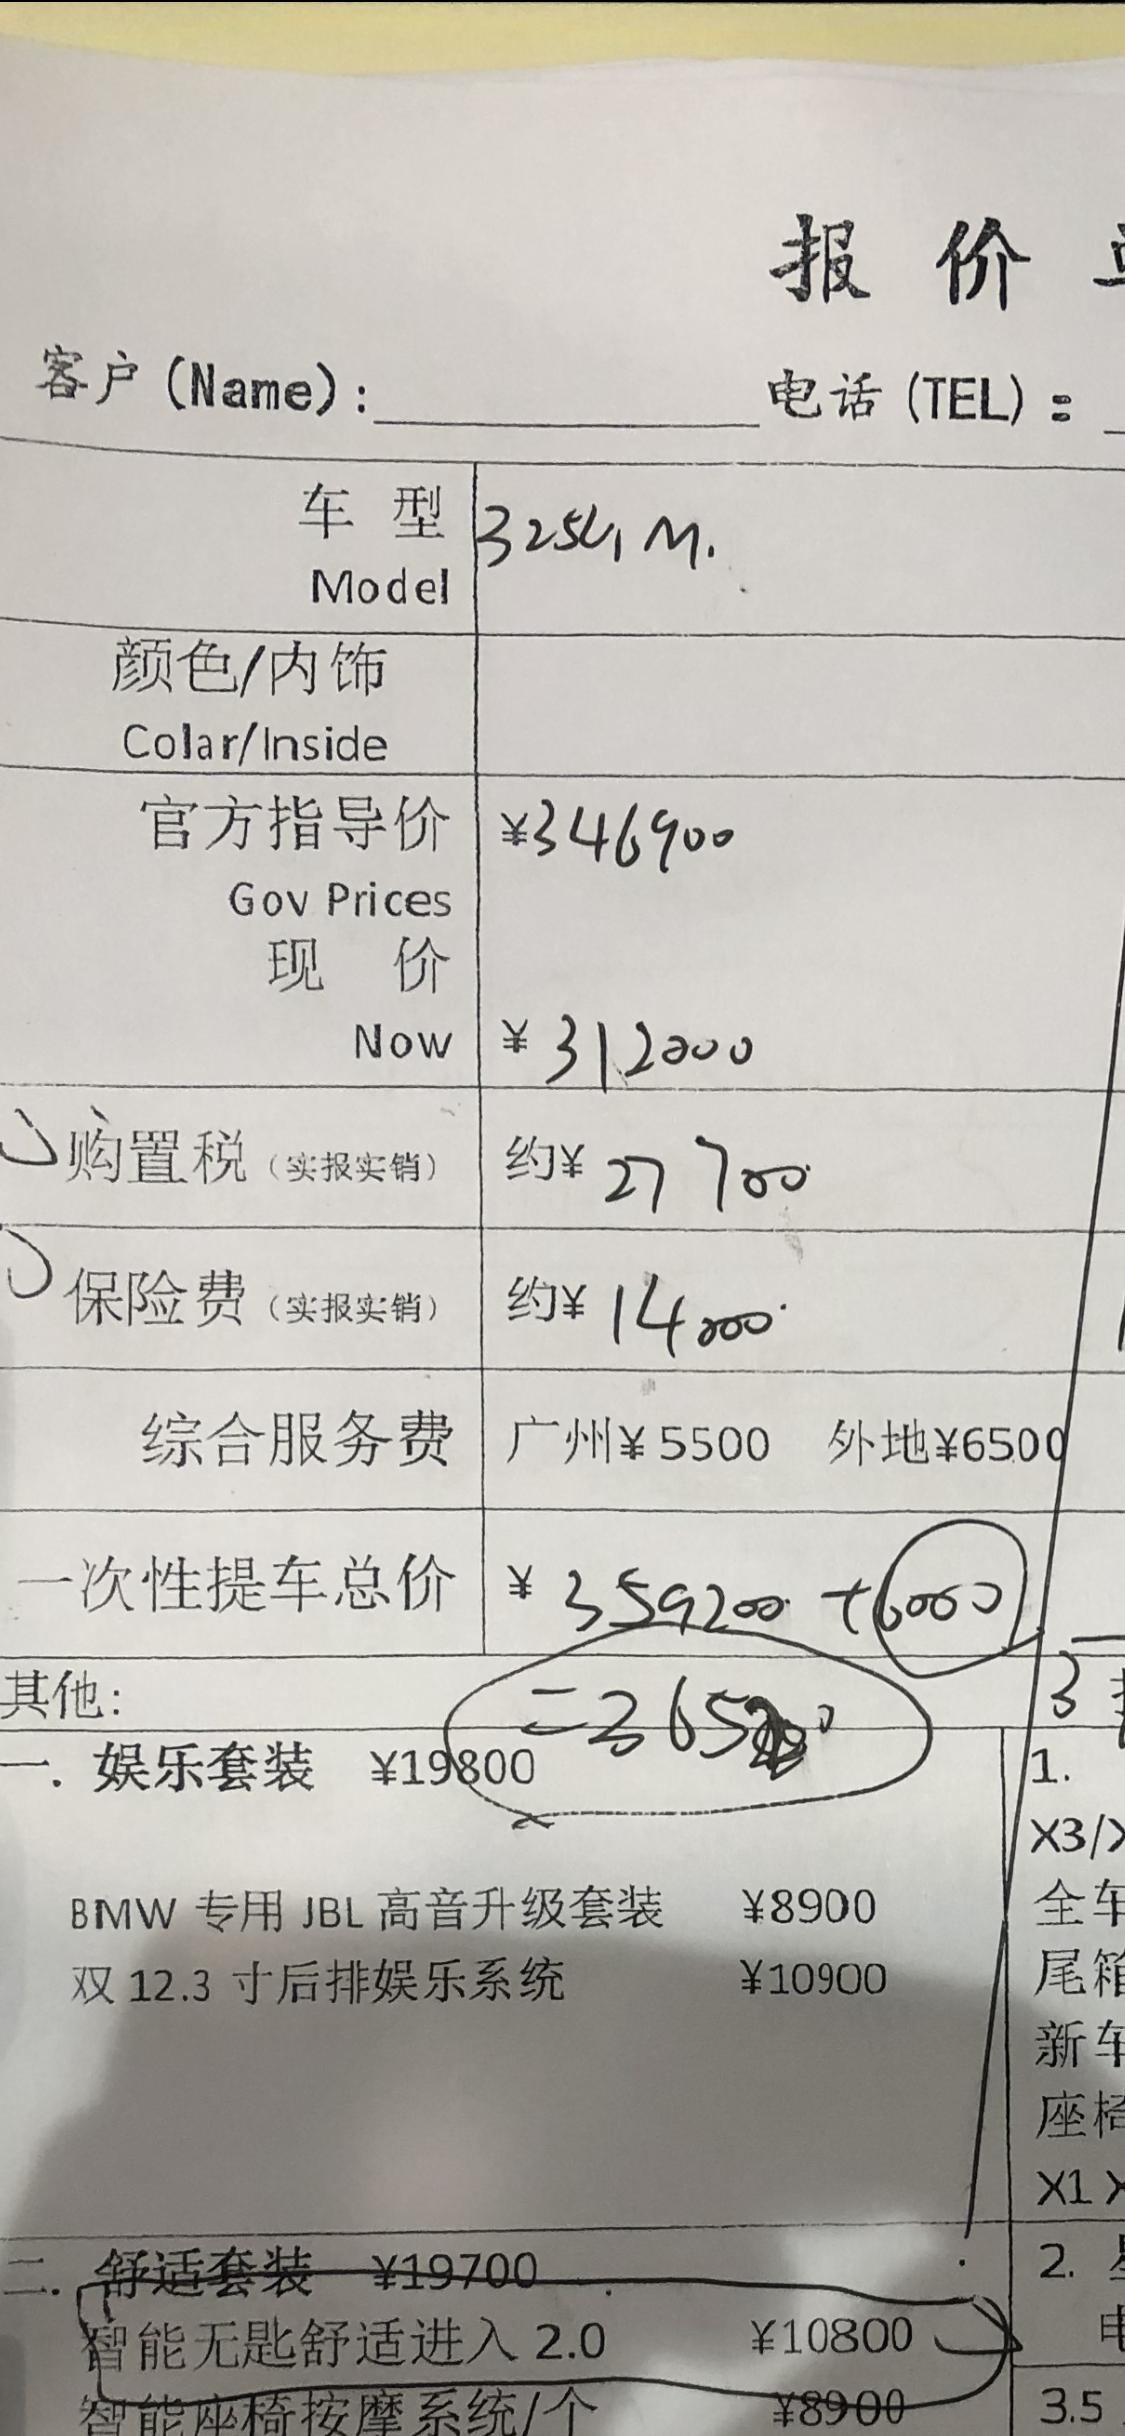 报 价
客户(Name):
电话(TEL):
车 型 325Li M.
Model
颜色/内饰
Colar/Inside
官方指导价 ¥346900
Gov Prices
现 价
Now ¥312000
购置税（实报实销） 约¥ 27700
保险费（实报实销） 约¥ 14000
综合服务费 广州¥5500 外地¥6500
一次性提车总价 ¥359200 +6000
其他:
3
一. 娱乐套装 ¥19800
1.
X3/X
BMW 专用 JBL 高音升级套装 ¥8900
全车
双 12.3 寸后排娱乐系统 ¥10900
尾箱
新车
座椅
X1 X
二. 舒适套装 ¥19700
2.
智能无匙舒适进入 2.0 ¥10800
电
智能座椅按摩系统/个 ¥8900
3.5